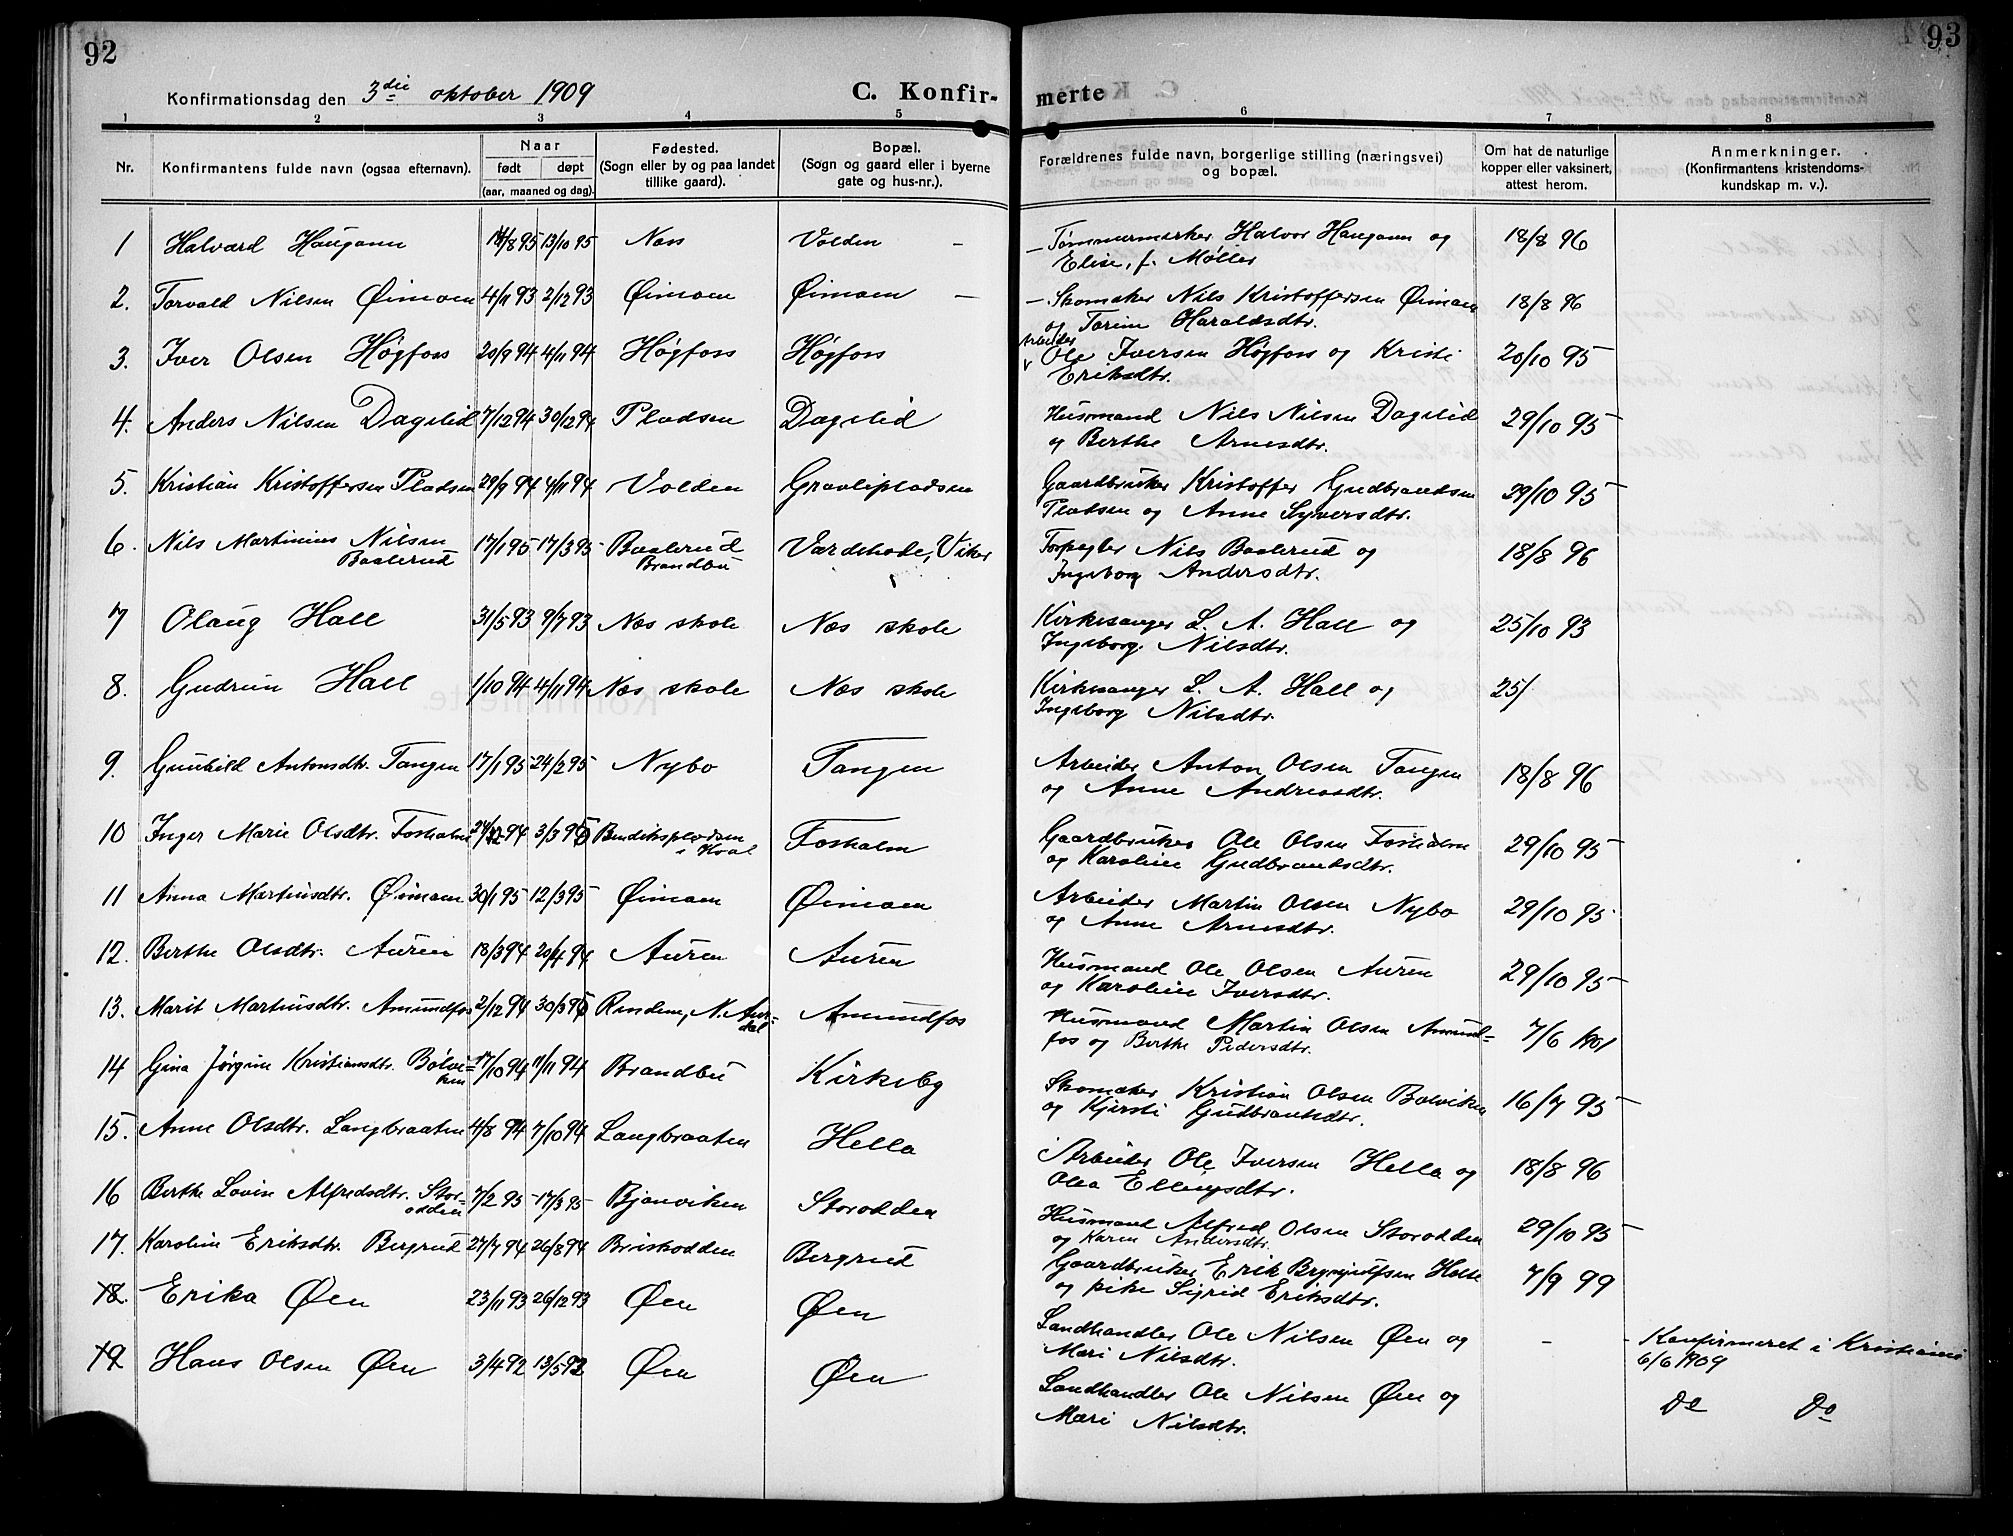 92
Konfirmationsdag den 3die oktober 1909
C. Konfir-
1 2 3 4 5
Nr. Konfirmantens fulde navn (ogsaa efternavn). Naar født døpt (aar, maaned og dag). Fødested. (Sogn eller by og paa landet tillike gaard). Bopæl. (Sogn og gaard eller i byerne gate og hus-nr.).
1 Halvard Haugann 8 95 13/10 95 Næs Volden -
2. Torvald Nilsen Øimoen 4/11 93 2/12 93 Øimoen Øimoen -
3. Iver Olsen Høgfoss 20/9 94 4/11 94 Høgfoss Høgfoss
4. Anders Nilsen Dagslid 7/12 94 30/12 94 Pladsen Dagslid
5. Kristian Kristoffersen Pladsen 29/9 94 4/11 94 Volden Gravlipladsen
6. Nils Martinius Nilsen 17/1 95 17/3 95 Baalerud Vardehode, Viker
Baalerud Brandbu
7 Olaug Hall 31/5 93 9/7 93 Næs skole Næs skole
8. Gudrun Hall 1/10 94 4/11 94 Næs skole Næs skole
9. Gunhild Antonsdtr. Tangen 17/1 95 24/2 95 Nybo Tangen
10 Inger Marie Olsdtr. Fosholm 94 3/3 95 Bendikspladsen Fosholm
i Hval
11 Anna Martinsdtr. Øimoen 30/1 95 12/3 95 Øimoen Øimoen
12. Berthe Olsdtr. Auren 18/3 94 20/4 94 Auren Auren
13. Marit Martinsdtr. Amundfos 2/12 94 30/3 95 Rindem, N. Aur= Amundfos
dal
14 Gina Jørgine Kristiansdtr. Bølvi= 17/10 94 11/11 94 Brandbu Kirkeby
ken
15. Anne Olsdtr. Langbraaten 4/8 94 7/10 94 Langbraaten Hella
16 Berthe Lovise Alfredsdtr. Stor= 7/2 95 17/3 95 Bjønviken Storodden
odden
17. Karoline Eriksdtr. Bergrud 27/7 94 26/8 94 Briskodden Bergrud
18. Erika Øen 23/11 93 26/12 93 Øen Øen
19 Hans Olsen Øen 3/4 92 13/5 92 Øen Øen
93
merte
6 7 8
Forældrenes fulde navn, borgerlige stilling (næringsvei) og bopæl. Om hat de naturlige kopper eller vaksinert, attest herom. Anmerkninger. (Konfirmantens kristendoms-kundskap m. v.).
- Tømmermerker Halvor Haugann og 18/8 96
Elise, f. Møller
- Skomaker Nils Kristoffersen Øimoen 18/8 96
og Torine Haraldsdtr.
Arbeider
v Ole Iversen Høgfoss og Kristi 20/10 95
Eriksdtr.
Husmand Nils Nilsen Dagslid 29/10 95
og Berthe Arnesdtr.
Gaardbruker Kristoffer Gudbrandsen 29/10 95
Pladsen og Anne Syversdtr.
Nils Baalerud og 18/8 96
Ingeborg Andersdtr.
Kirkesanger L. A. Hall og 25/10 93
Ingeborg Nilsdtr.
Kirkesanger L. A. Hall og 25/
Ingeborg Nilsdtr.
Arbeider Anton Olsen Tangen 18/8 96
og Anne Andreasdtr.
Gaardbruker Ole Olsen Fosholm 29/10 95
og Karoline Gudbrandsdtr.
Arbeider Martin Olsen Nybo 29/10 95
og Anne Arnesdtr.
Husmand Ole Olsen Auren 29/10 95
og Karoline Iversdtr.
Husmand Martin Olsen Amund= 7/6 1901
fos og Berthe Pedersdtr.
Skomaker Kristian Olsen Bølviken 16/7 95
og Kjersti Gudbrandsdtr.
Arbeider Ole Iversen Hella og 18/8 96
Olea Ellingsdtr.
Husmand Alfred Olsen Storodden 29/10 95
og Karen Andersdtr.
Gaardbruker Erik Brynjulfsen Holte 7/9 99
og pike Sigrid Eriksdtr.
Landhandler Ole Nilsen Øen og - - Konfirmeret i Kristiania
Mari Nilsdtr. 6/6 1909
Landhandler Ole Nilsen Øen og Do Do
Mari Nilsdtr.